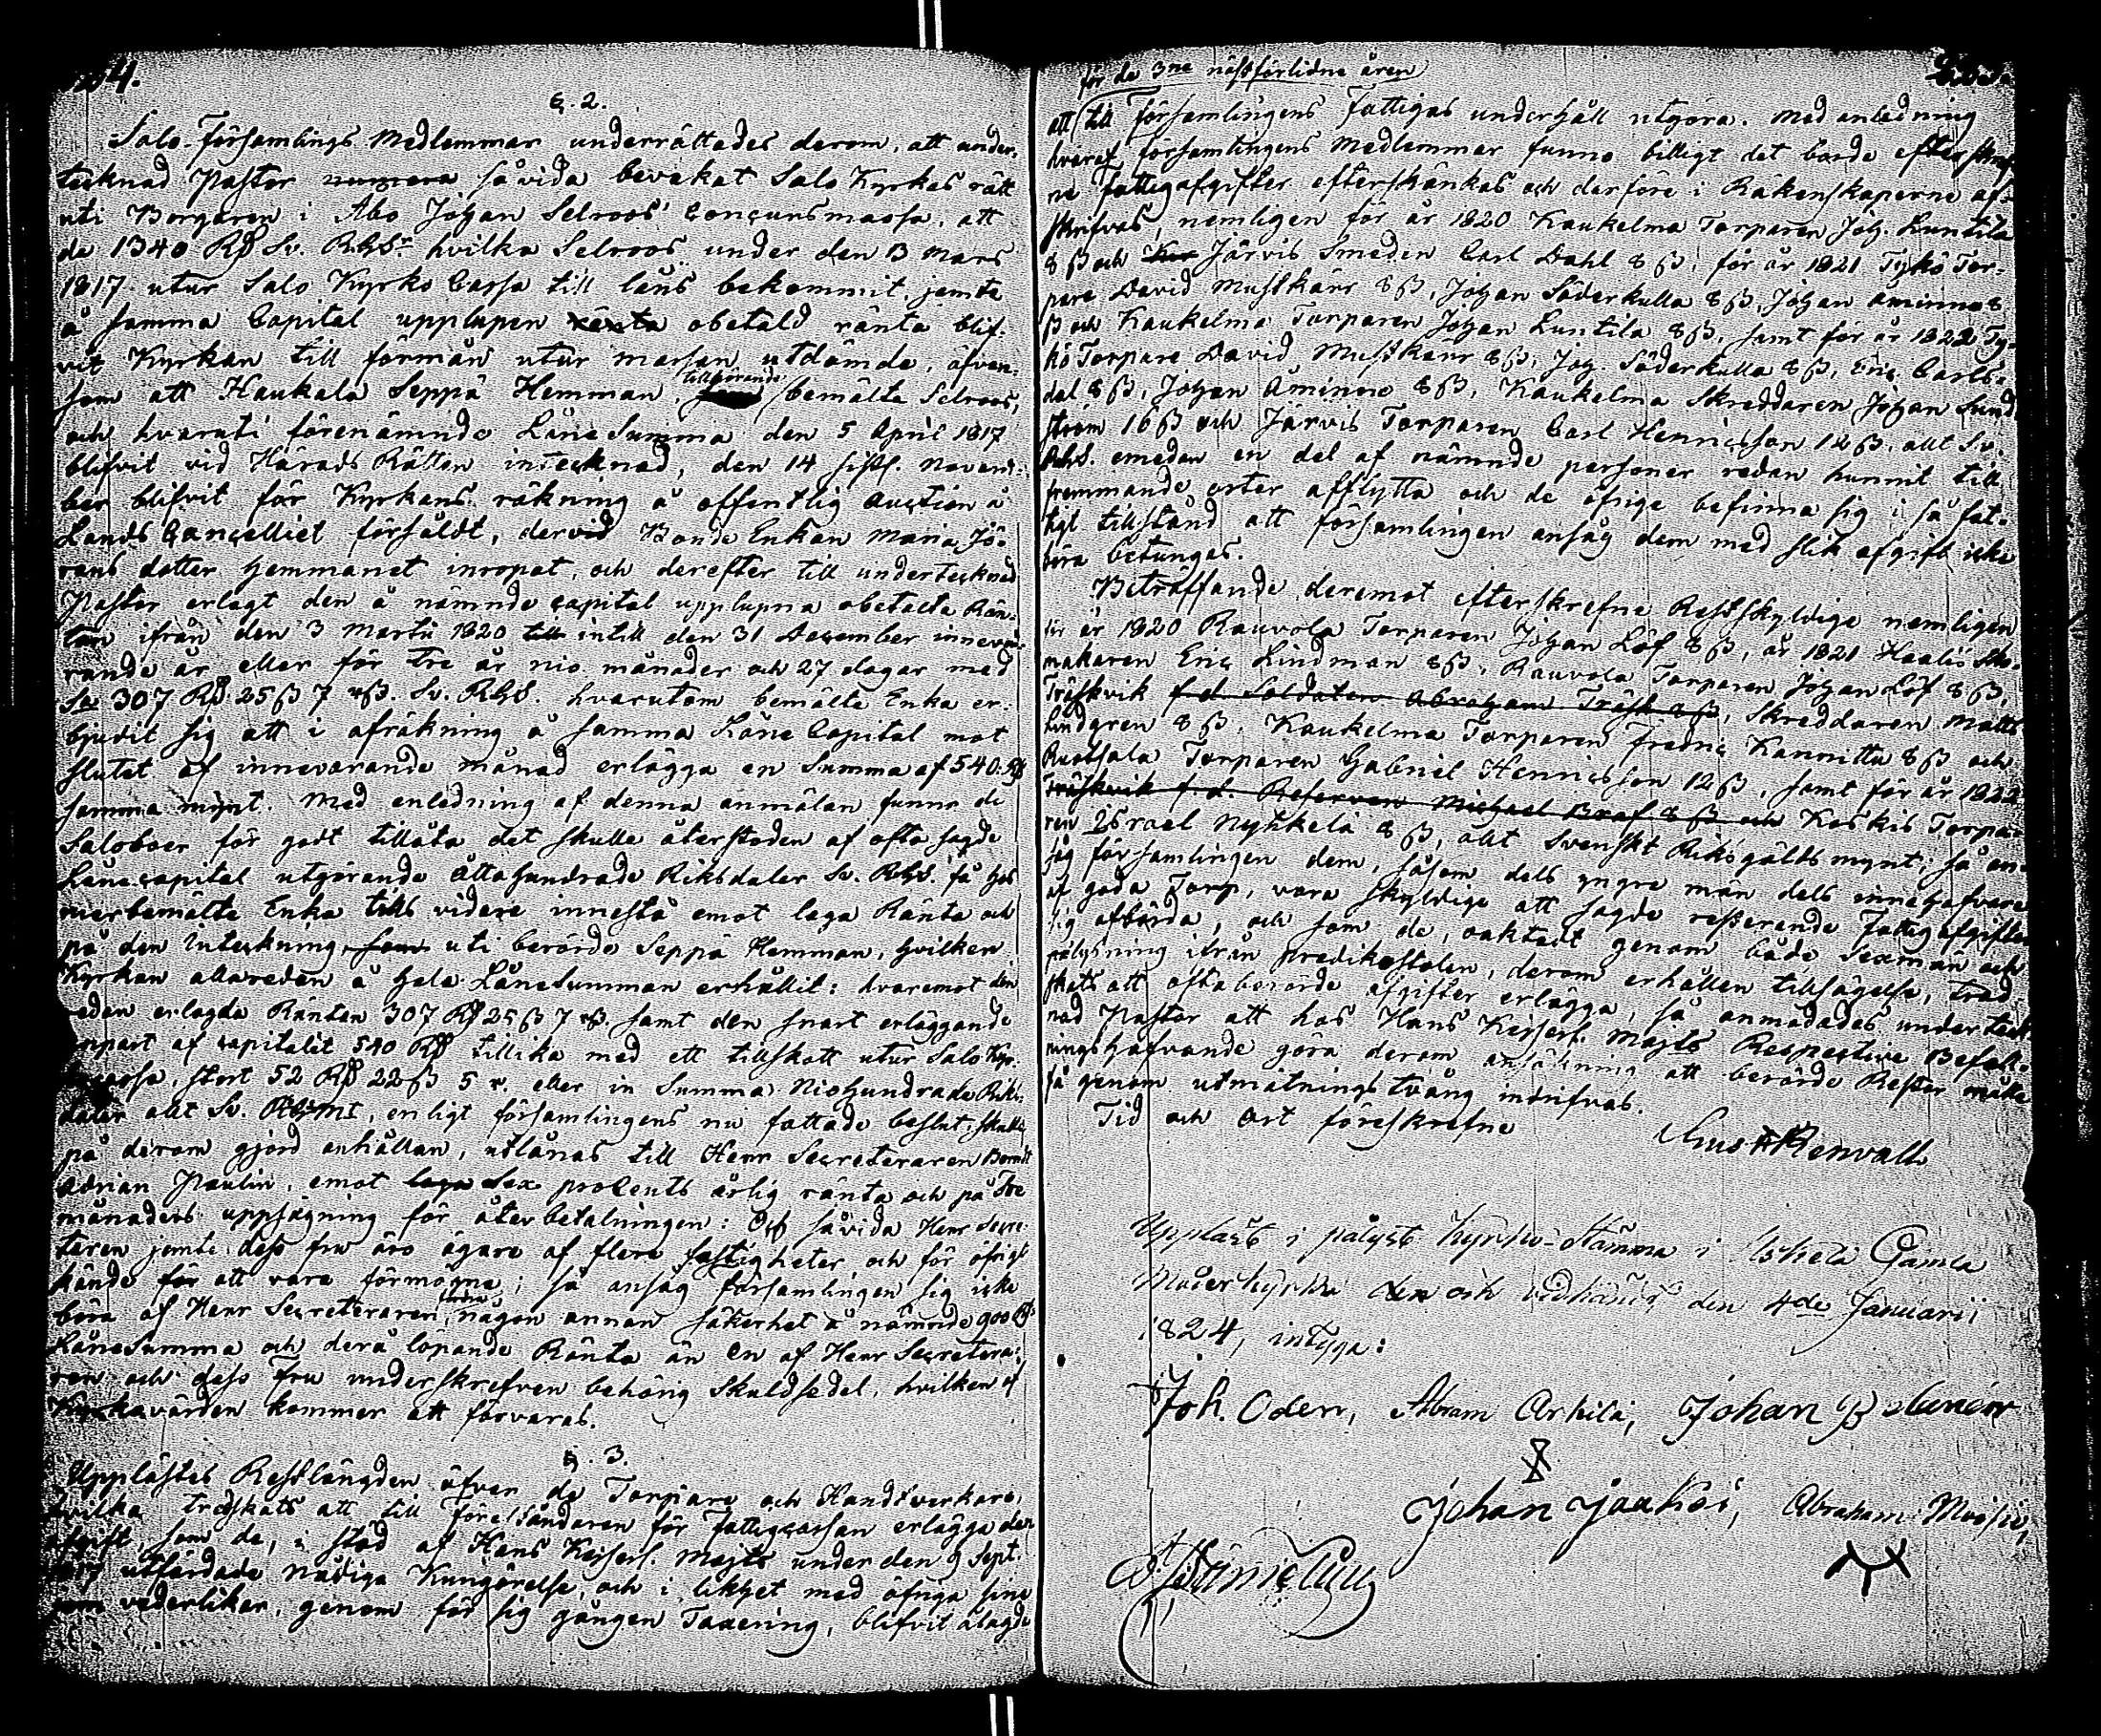 4.
§. 2.
Salo-Församlings Medlemmar underrättades derom, att under-
tecknad Pastor numera såvida bevakat Salo Kyrkas rätt
uti Borgaren i Åbo Johan Selroos' Concursmassa, att
de 1340 Rd Sv. RGSr hvilka Selroos under den 13 Mars
1817 utur Salo Kyrko Cassa till låns bekommit, jemte
å samma Capital upplupen ränta obetald ränta blif-
vit Kyrkan till förmån utur massan utdömde, äfven-
som att Haukala Seppä Hemman, tillhörande bemälte Selroos,
och hvaruti förenämnde Låne Summa den 5 April 1817
blifvit vid Härads Rätten intecknad, den 14 sistl. Novem-
ber blifvit för Kyrkans räkning å offentlig Auction å
Lands Cancelliet försåldt, dervid Bonde Enkan Maria Jö-
rans dotter Hemmanet inropat, och derefter till undertecknad
Pastor erlagt den å nämnde capital upplupna obetalte Rän-
tan ifrån den 3 Martii 1820 till intill den 31 December inneva-
rande år eller för Tre år nio månader och 27 dagar med
307 Rd 25 ß 7 rß. Sv. RGS. hvarutom bemälte Enka er-
bjudit sig att i afräkning å samma Låne Capital mot
slutet af innevarande månad erlägga en Summa af 540 Rd
samma mynt. Med anledning af denna anmälan funno de
Saloboer för godt tillåta det skulle återstoden af ofta sagde
Lånecapital utgörande Åttahundrade Riksdaler Sv. RGS. få hos
merbemälte Enka tills vidare innestå emot laga Ränta och
på den Inteckning, som uti berörde Seppä Hemman, hvilken
Kyrkan allaredan å hela Lånesumman erhållit: hvaremot den
redan erlagde Räntan 307 Rd 25 ß 7 rß. samt den snart erläggande
appart af capitalet 540 Rd tillika med ett tillskott utur Salo Kyr-
cassa, stort 52 Rd 22 ß 5 r. eller in Summa Niohundrade Riks-
daler allt Sv. RGsmt, enligt församlingens nu fattade beslut, skulle
på derom gjord anhållan, utlånas till Herr Secreteraren Berndt
Adrian Paulin, emot laga Sex procents årlig ränta och på Tre
månaders uppsägning för återbetalningen: Och såvida Herr Secre-
teraren jemte dess fru äro ägare af flere fastigheter och för öfrigt
kände för att vara förmögne; så ansåg församlingen sig icke
böra af Herr Secreteraren fordra någon annan säkerhet å nämnde 900 Rd
LåneSumma och derå löpande Ränta än en af Herr Secretera-
ren och dess Fru underskrefven behörig Skuldsedel, hvilken af
Kyrkavärden kommer att förvaras.
§. 3.
Upplästes Restlängden öfver de Torpare och Handtverkare,
hvilka tredskats att till Föreståndaren för Fattigcassan erlägga den
afgift som de, i stöd af Hans Keiserl. Majts under den 9 Sept.
utfärdade Nådiga Kungörelse, och i likhet med öfriga sine
vederlikar, genom för sig gången Taxering, blifvit ålagde
för de 3ne nästförlidne åren
att till Församlingens Fattigas underhåll utgöra. Med anledning
hvaraf församlingens Medlemmar funno billigt det borde efterskref-
ne fattigafgifter efterskänkas och derföre i Räkenskaperne af-
skrifvas, nemligen för år 1820 Kaukelma Torparen Joh. Luntila
8 ß och Kor Järvis Smeden Carl Dahl 8 ß, för år 1821 Tykö Tor-
pare David Mustkärr 8 ß, Johan Söderkulla 8 ß, Johan Aminne 8
ß och Kaukelma Torparen Johan Luntila 8 ß, samt för år 1822 Ty-
kö Torpare David Mustkärr 8 ß, Joh. Söderkulla 8 ß, Eric Carls-
dal 8 ß, Johan Åminne 8 ß, Kaukelma Skreddaren Johan Sund-
ström 16 ß och Järvis Torparen Carl Henricsson 12 ß, allt Sv.
RGS. emedan en del af nämnde personer redan hunnit till
främmande orter afflytta och de öfrige befinna sig i så fat-
tigt tillstånd att församlingen ansåg dem med slik afgift icke
böra betungas.
Beträffande deremot efterskrefne Restskyldige nemligen
för år 1820 Rauvola Torparen Johan Löf 8 ß, år 1821 Haaliö Sko-
makaren Eric Lindman 8 ß, Rauvola Torparen Johan Löf 8 ß,
Träskvik f.d. Soldaten Abraham Träsk 8 ß, Skreddaren Matts
Lindgren 8 ß, Kaukelma Torparen Fredric Kannitta 8 ß och
Ruotsala Torparen Gabriel Henricsson 12 ß, samt för år 1822
Träskvik f.d. Reserven Michael Braf 8 ß och Koskis Torpa-
ren Israel Nyhkelä 8 ß, allt Svenskt Riksgälds mynt; så an-
såg församlingen dem, såsom dels yngre män dels innehafvare
af goda Torp, vara skyldige att sagde resterande Fattigafgifter
sig afbörda, och som de, oaktadt genom både Sexmän och
pålysning ifrån predikostolen, derom erhållen tillsägelse, tred-
skats att oftaberörde afgifter erlägga, så anmodades underteck-
nad Pastor att hos Hans Keiserl. Majts Respective Befall-
ningshafvande göra derom ansökning att berörde Rester måtte
få genom utmätnings tvång indrifvas.
Tid och Ort föreskrefne
Gust. Renvall
Upplast i pålyst Kyrko-Stämma i Uskela Gamla
Moderkyrka den och vidkänd den 4de Januarii
1824, intyga:
Joh. Oden, Abram Arkila, Johan
Johan Jaakoi, Abraham